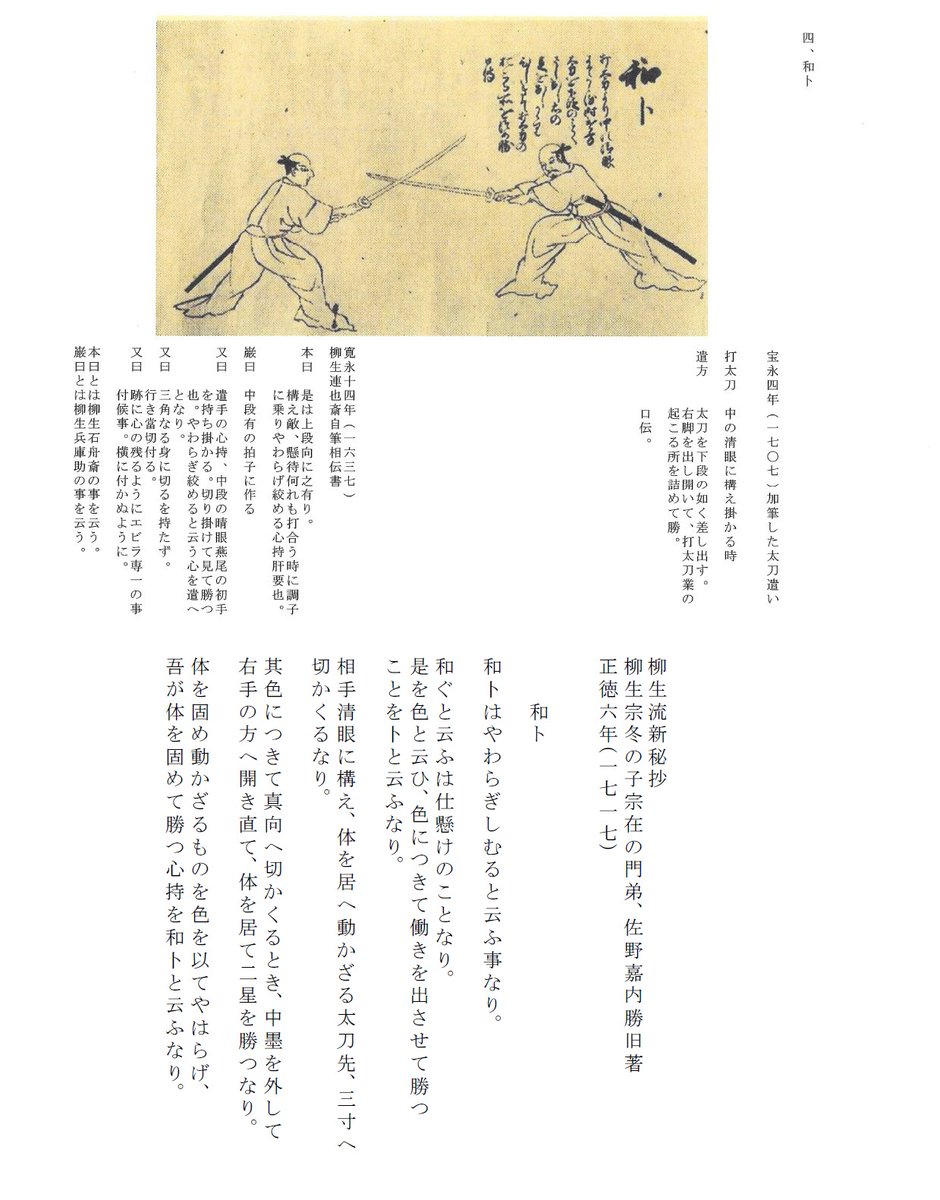 四、和卜
和卜
宝永四年（一七〇七）加筆した太刀遣い
打太刀　中の清眼に構え掛かる時
遣方　太刀を下段の如く差し出す。
右脚を出し開いて、打太刀業の
起こる所を詰めて勝。
口伝。
寛永十四年（一六三七）
柳生連也斎自筆相伝書
本曰　是は上段向に之有り。
構え敵、懸待何れも打合う時に調子
に乗りやわらげ絞める心持肝要也。
巌曰　中段有の拍子に作る
又曰　遣手の心持、中段の晴眼燕尾の初手
を持ち掛かる。切り掛けて見て勝つ
也。やわらぎ絞めると云う心を遣へ
となり。
又曰　三角なる身に切るを持たず。
行き當切付る。
又曰　跡に心の残るようにエビラ専一の事
付候事。横に付かぬように。
本曰とは柳生石舟斎の事を云う。
巌曰とは柳生兵庫助の事を云う。
柳生流新秘抄
柳生宗冬の子宗在の門弟、佐野嘉内勝旧著
正徳六年（一七一七）
和卜
和卜はやわらぎしむると云ふ事なり。
和ぐと云ふは仕懸けのことなり。
是を色と云ひ、色につきて働きを出させて勝つ
ことを卜と云ふなり。
相手清眼に構え、体を居へ動かざる太刀先、三寸へ
切かくるなり。
其色につきて真向へ切かくるとき、中墨を外して
右手の方へ開き直て、体を居て二星を勝つなり。
体を固め動かざるものを色を以てやはらげ、
吾が体を固めて勝つ心持を和卜と云ふなり。